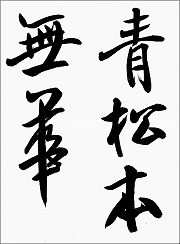 青松本
無華